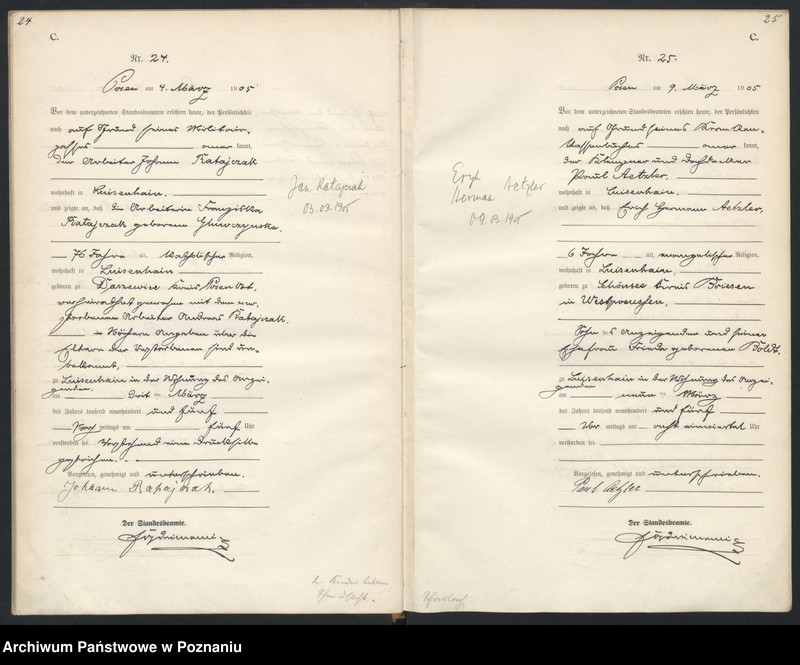 24
C.
Nr. 24.
Posen am 4. März 1905
Vor dem unterzeichneten Standesbeamten erschien heute, der Persönlichkeit
nach auf Grund seines Militair-
passes aner kannt,
der Arbeiter Johann Ratajczak
wohnhaft in Luisenhain,
und zeigte an, daß die Arbeiterin Franziska
Ratajczak geborene
76 Jahre alt, katholischer Religion,
wohnhaft in Luisenhain
geboren zu Daszewice Kreis Posen Ost,
verheirathet gewesen mit dem ver-
storbenen Arbeiter Andreas Ratajczak.
Nähere Angaben über die
Eltern der Verstorbenen sind un-
bekannt,
zu Luisenhain in der Wohnung des Anzei-
genden
am drit ten März
des Jahres tausend neunhundert und fünf
Nach mittags um fünf Uhr
verstorben sei. Vorstehend eine Drucksilbe
gestrichen.
Vorgelesen, genehmigt und unterschrieben.
Johann Ratajczak.
Der Standesbeamte.
Jan Ratajczak
03.03.1905
25
C.
Nr. 25.
Posen am 9. März 1905
Vor dem unterzeichneten Standesbeamten erschien heute, der Persönlichkeit
nach auf Grund seines Kranken-
kassenbuches aner kannt,
der Klempner und Dachdecker
Paul Aetzler,
wohnhaft in Luisenhain,
und zeigte an, daß Erich Hermann Aetzler,
6 Jahre alt, evangelischer Religion,
wohnhaft in Luisenhain,
geboren zu Schönsee Kreis Briesen
in Westpreußen,
Sohn des Anzeigenden und seiner
Ehefrau Frieda geborenen Boldt.
zu Luisenhain in der Wohnung des Anzei-
genden
am neun ten März
des Jahres tausend neunhundert und fünf
Vor mittags um acht einviertel Uhr
verstorben sei.
Vorgelesen, genehmigt und unterschrieben.
Paul Aetzler
Der Standesbeamte.
Eryk
Herman Aetzler
09.03.1905
Archiwum Państwowe w Poznaniu